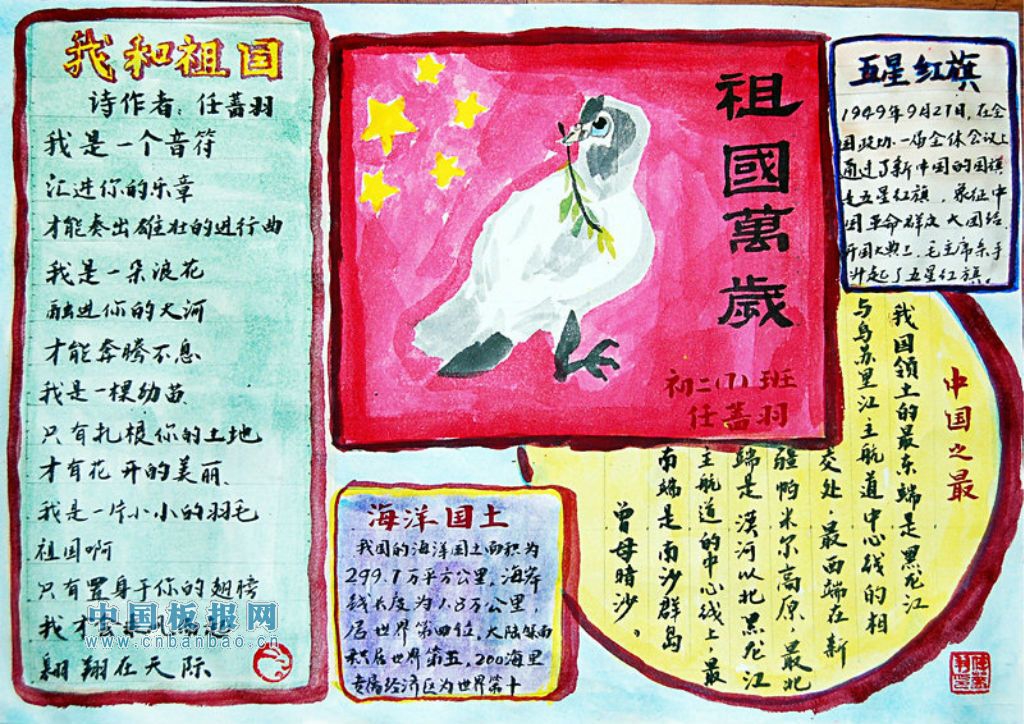 我和祖国
诗作者：任蔷羽
我是一个音符
汇进你的乐章
才能奏出雄壮的进行曲
我是一朵浪花
融进你的大河
才能奔腾不息
我是一棵幼苗
只有扎根你的土地
才有花开的美丽、
我是一片小小的羽毛
祖国啊
只有置身于你的翅膀
我才
翱翔在天际
中国板报网
www.cnbanbao.cn
祖國萬歲
初二(7)班
任蔷羽
五星红旗
1949年9月27日，在全
国政协一届全体会议上
通过了新中国的国旗
是五星红旗，象征中
国革命群众大团结.
开国大典上，毛主席亲手
升起了五星红旗.
海洋国土
我国的海洋国土面积为
299.7万平方公里，海岸
线长度为1.8万公里，
居世界第四位，大陆架面
积居世界第五，200海里
专属经济区为世界第十
中国之最
我国领土的最东端是黑龙江
与乌苏里江主航道中心线的相
交处，最西端在新
疆帕米尔高原，最北
端是漠河以北黑龙江
主航道的中心线上，最
南端是南沙群岛
曾母暗沙，